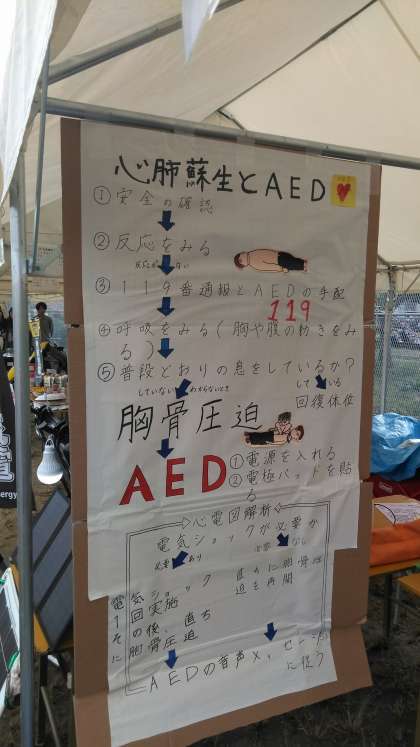 心肺蘇生とAED
①安全の確認
②反応をみる
反応がない
③119番通報とAEDの手配
119
④呼吸をみる(胸や腹の動きをみ
る)
⑤普段どおりの息をしているか?
していない わからないとき
している
胸骨圧迫
回復体位
AED
①電源を入れる
②電極パッドを貼
る
心電図解析
電気ショックが必要か
必要 あり
必要 なし
電気ショック
1回実施
その後、直ち
に胸骨圧迫
直ちに胸骨圧
迫を再開
AEDの音声メッセージ
に従う
nergy